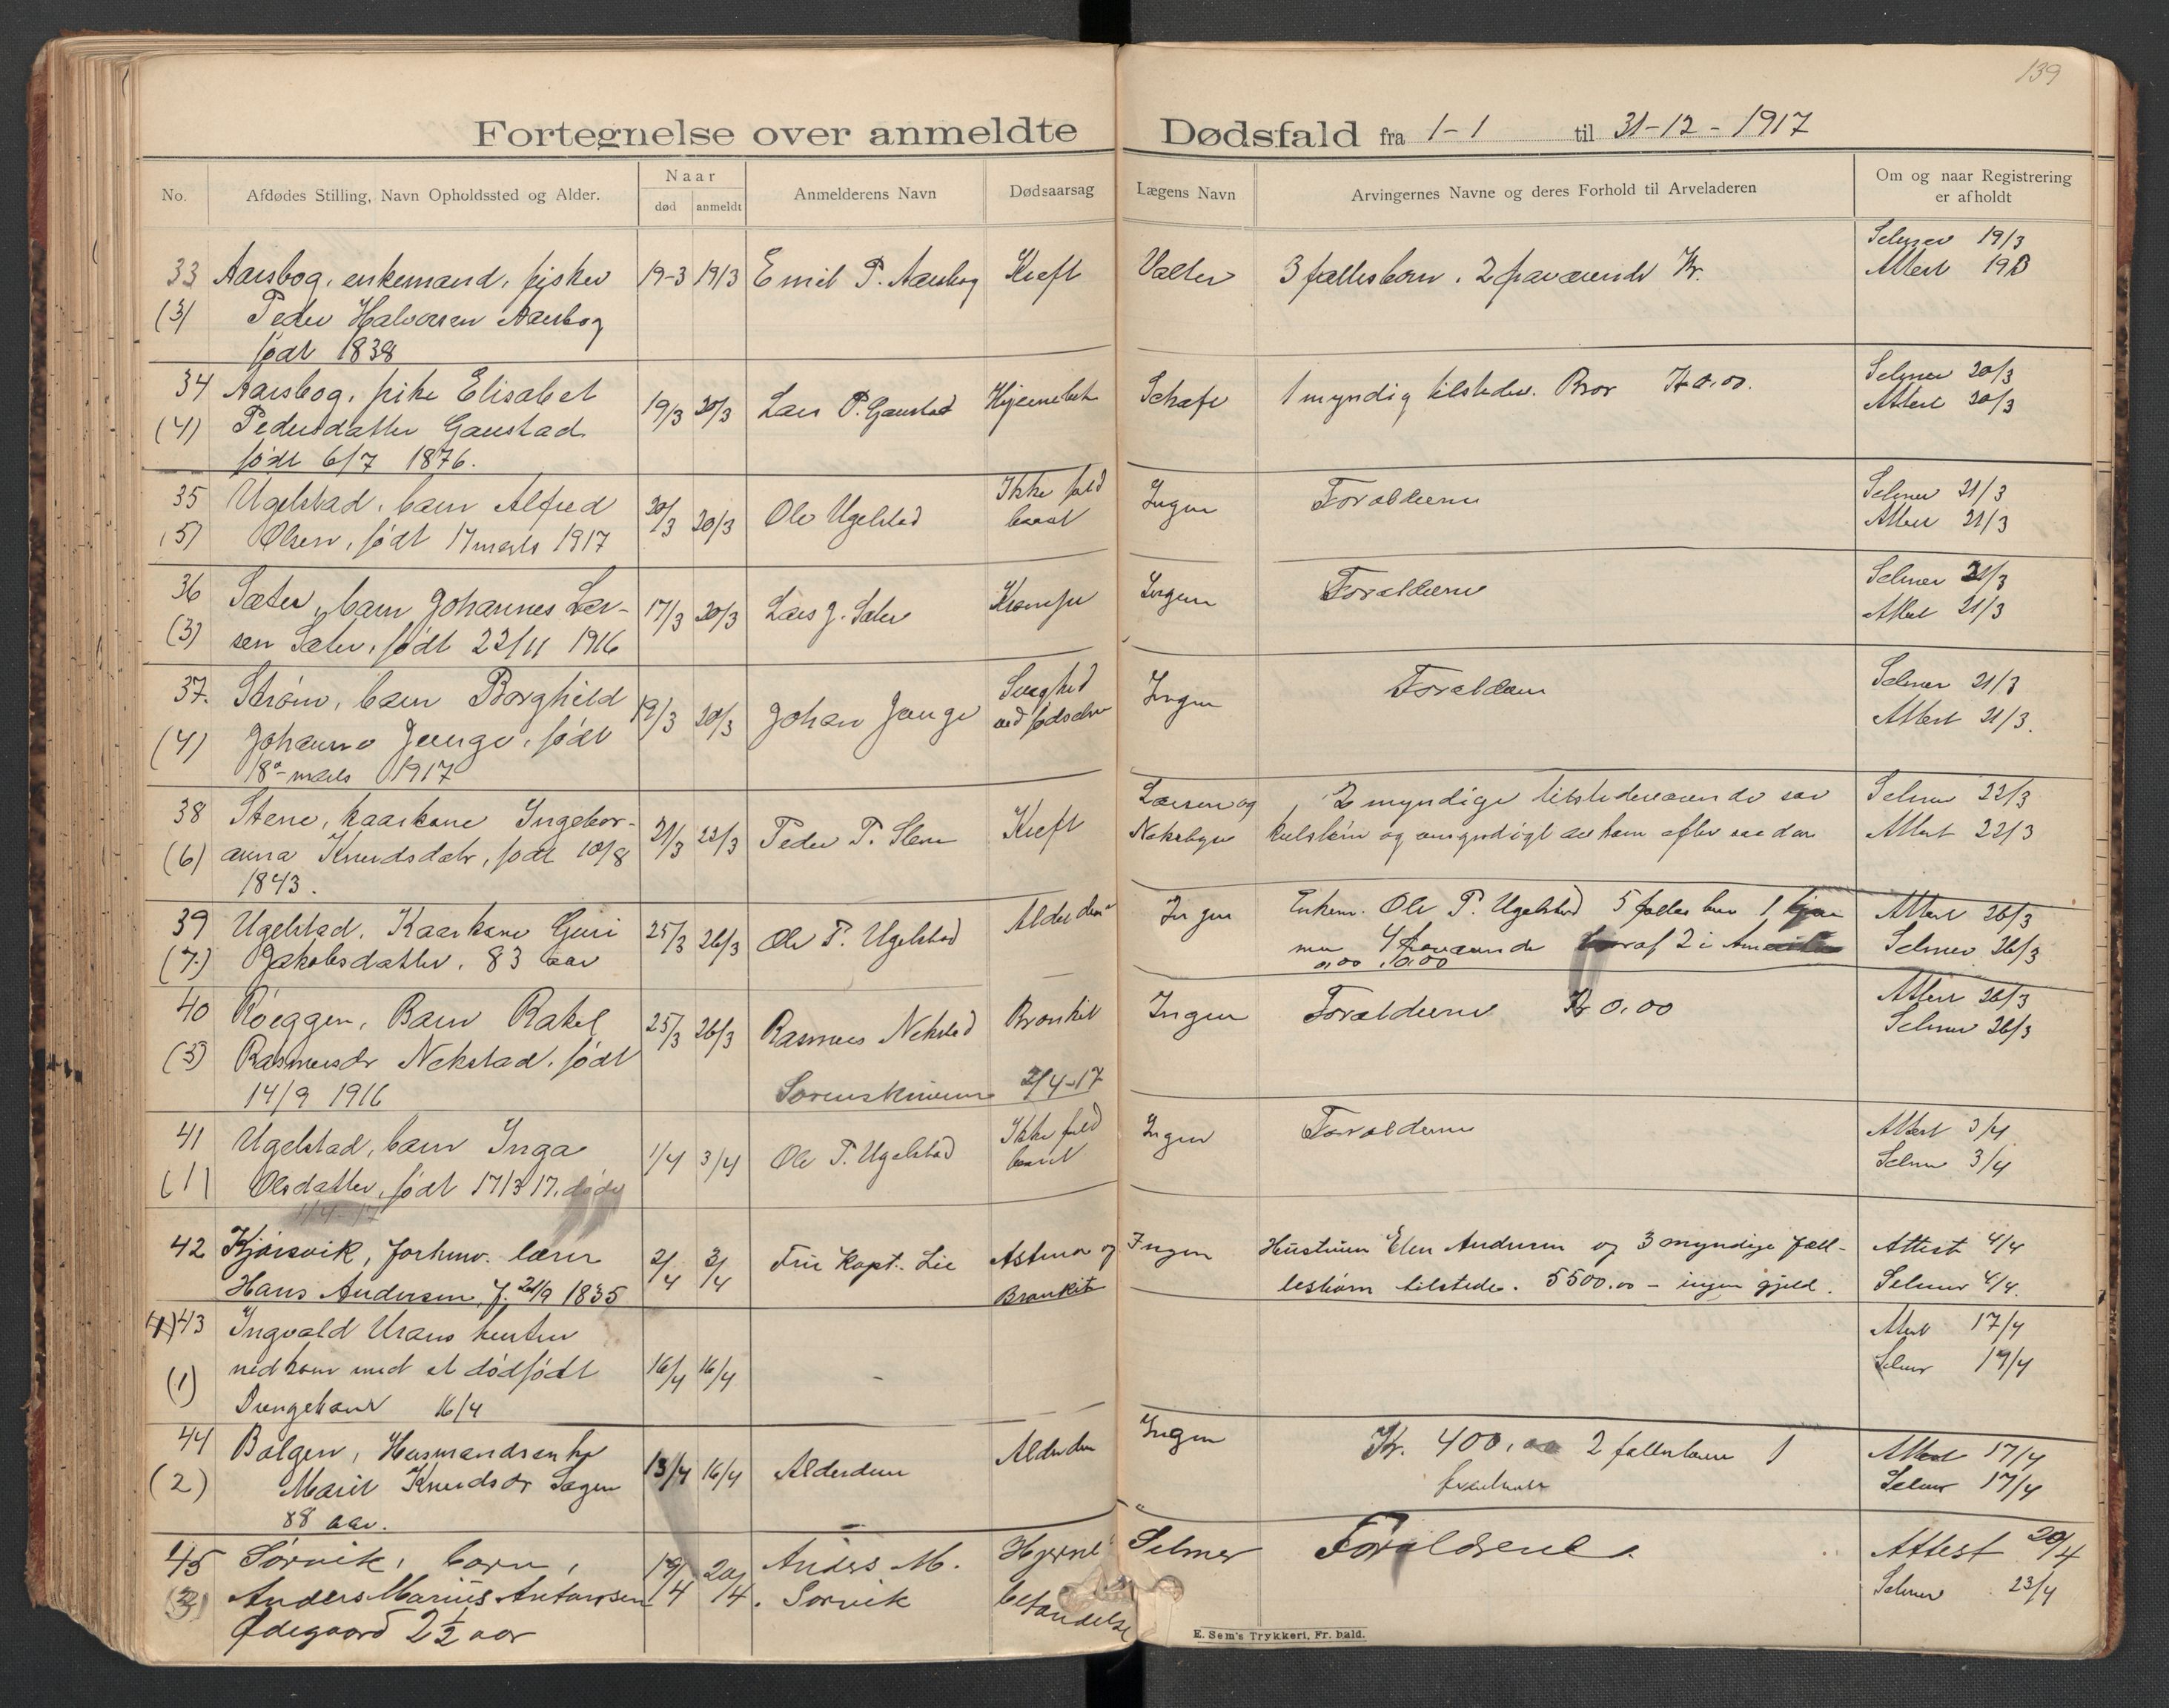 139
Fortegnelse over anmeldte Dødsfald fra 1-1 til 31-12-1917
No.
Afdødes Stilling, Navn Opholdssted og Alder.
Naar
død
anmeldt
Anmelderens Navn
Dødsaarsag
Lægens Navn
Arvingernes Navne og deres Forhold til Arveladeren
Om og naar Registrering
er afholdt
Selmer 19/3
33 Aarsbog, enkemand, fisker 19-3 19/3 Emil P. Aarsbog Kreft Valter 3 fællesbarn, 2 fraværende Kr. Attest 19/3
(3) Peder Halvorsen Aarsbog
født 1838
34 Aarsbog, pike Elisabet 19/3 20/3 Lars P. Gaustad Schafe 1 myndig tilstede. Bror Kr 0,00. Selmer 20/3
(4) Pedersdatter Gaustad Attest 20/3
født 6/7 1876.
35 Ugelstad, barn Alfred 20/3 20/3 Ole Ugelstad Ikke fuld Ingen Forældrene Selmer 21/3
(5) Olsen, født 17 marts 1917 baaret Attest 21/3
36 Sæter, barn Johannes Lar- 17/3 20/3 Lars J. Sæter Krampe Ingen Forældrene Selmer 21/3
(3) sen Sæter, født 22/11 1916 Attest 21/3
37. Strøm, barn Borghild 19/3 20/3 Johan Junge Svaghed Ingen Forældrene Selmer 21/3
(4) Johanne Junge, født ved fødselen Attest 21/3.
18de marts 1917
38 Stene, kaarkone Ingebor- 21/3 22/3 Peder P. Stene Kreft Larsen og 2 myndige tilstedeværende Selmer 22/3
(6) anna Knudsdatr, født 10/8 Attest 22/3
1843.
39 Ugelstad, Kaarkone Guri 25/3 26/3 Ole P. Ugelstad Alderdom Ingen Enkem. Ole P. Ugelstad 5 fælles barn 1 Attest 26/3
(7) Jakobsdatter, 83 aar 4 fraværende hvoraf 2 i Amerika Selmer 26/3
0,00 0,00
40 Røeggen, Barn Rakel 25/3 26/3 Rasmus Nekstad Bronkit Ingen Forældrene Kr 0,00 Attest 26/3
(5) Rasmusdr Nekstad, født Selmer 26/3
14/9 1916 Sorenskriveren 2/4-17
41 Ugelstad, barn Inga 1/4 3/4 Ole P. Ugelstad Ikke fuld Ingen Forældrene Attest 3/4
(1) Olsdatter, født 17/3 17, døde baaret Selmer 3/4
1/4-17
42 Kjørsvik, forhenv. lærer 2/4 3/4 Fru Kapt. Lie Astma og Ingen Hustruen Elen Andersen og 3 myndige fæll- Attest 4/4
Hans Andersen f. 21/9 1835 Bronkit lesbørn tilstede. 5500.00 – ingen gjeld. Selmer 4/4.
43 Ingvald Urans hustru Attest 17/4
(1) nedkom med et dødfødt 16/4 16/4 - Selmer 17/4
Drengebarn 16/4
44 Bolgen, Husmandsenke 13/4 16/4 Alderdom Alderdom Ingen Kr. 400,00 2 fællesbarn 1 Attest 17/4
(2) Marit Knudsdr Sagen Selmer 17/4
88 aar.
45 Sørvik, barn, 19/4 20/4 Anders M. Hjerne Selmer Forældrene. Attest 20/4
Anders Marius Antonsen Sørvik betændelse Selmer 23/4
Ødegaard 2 1/2 aar
E. Sem's Trykkeri, Fr.hald.